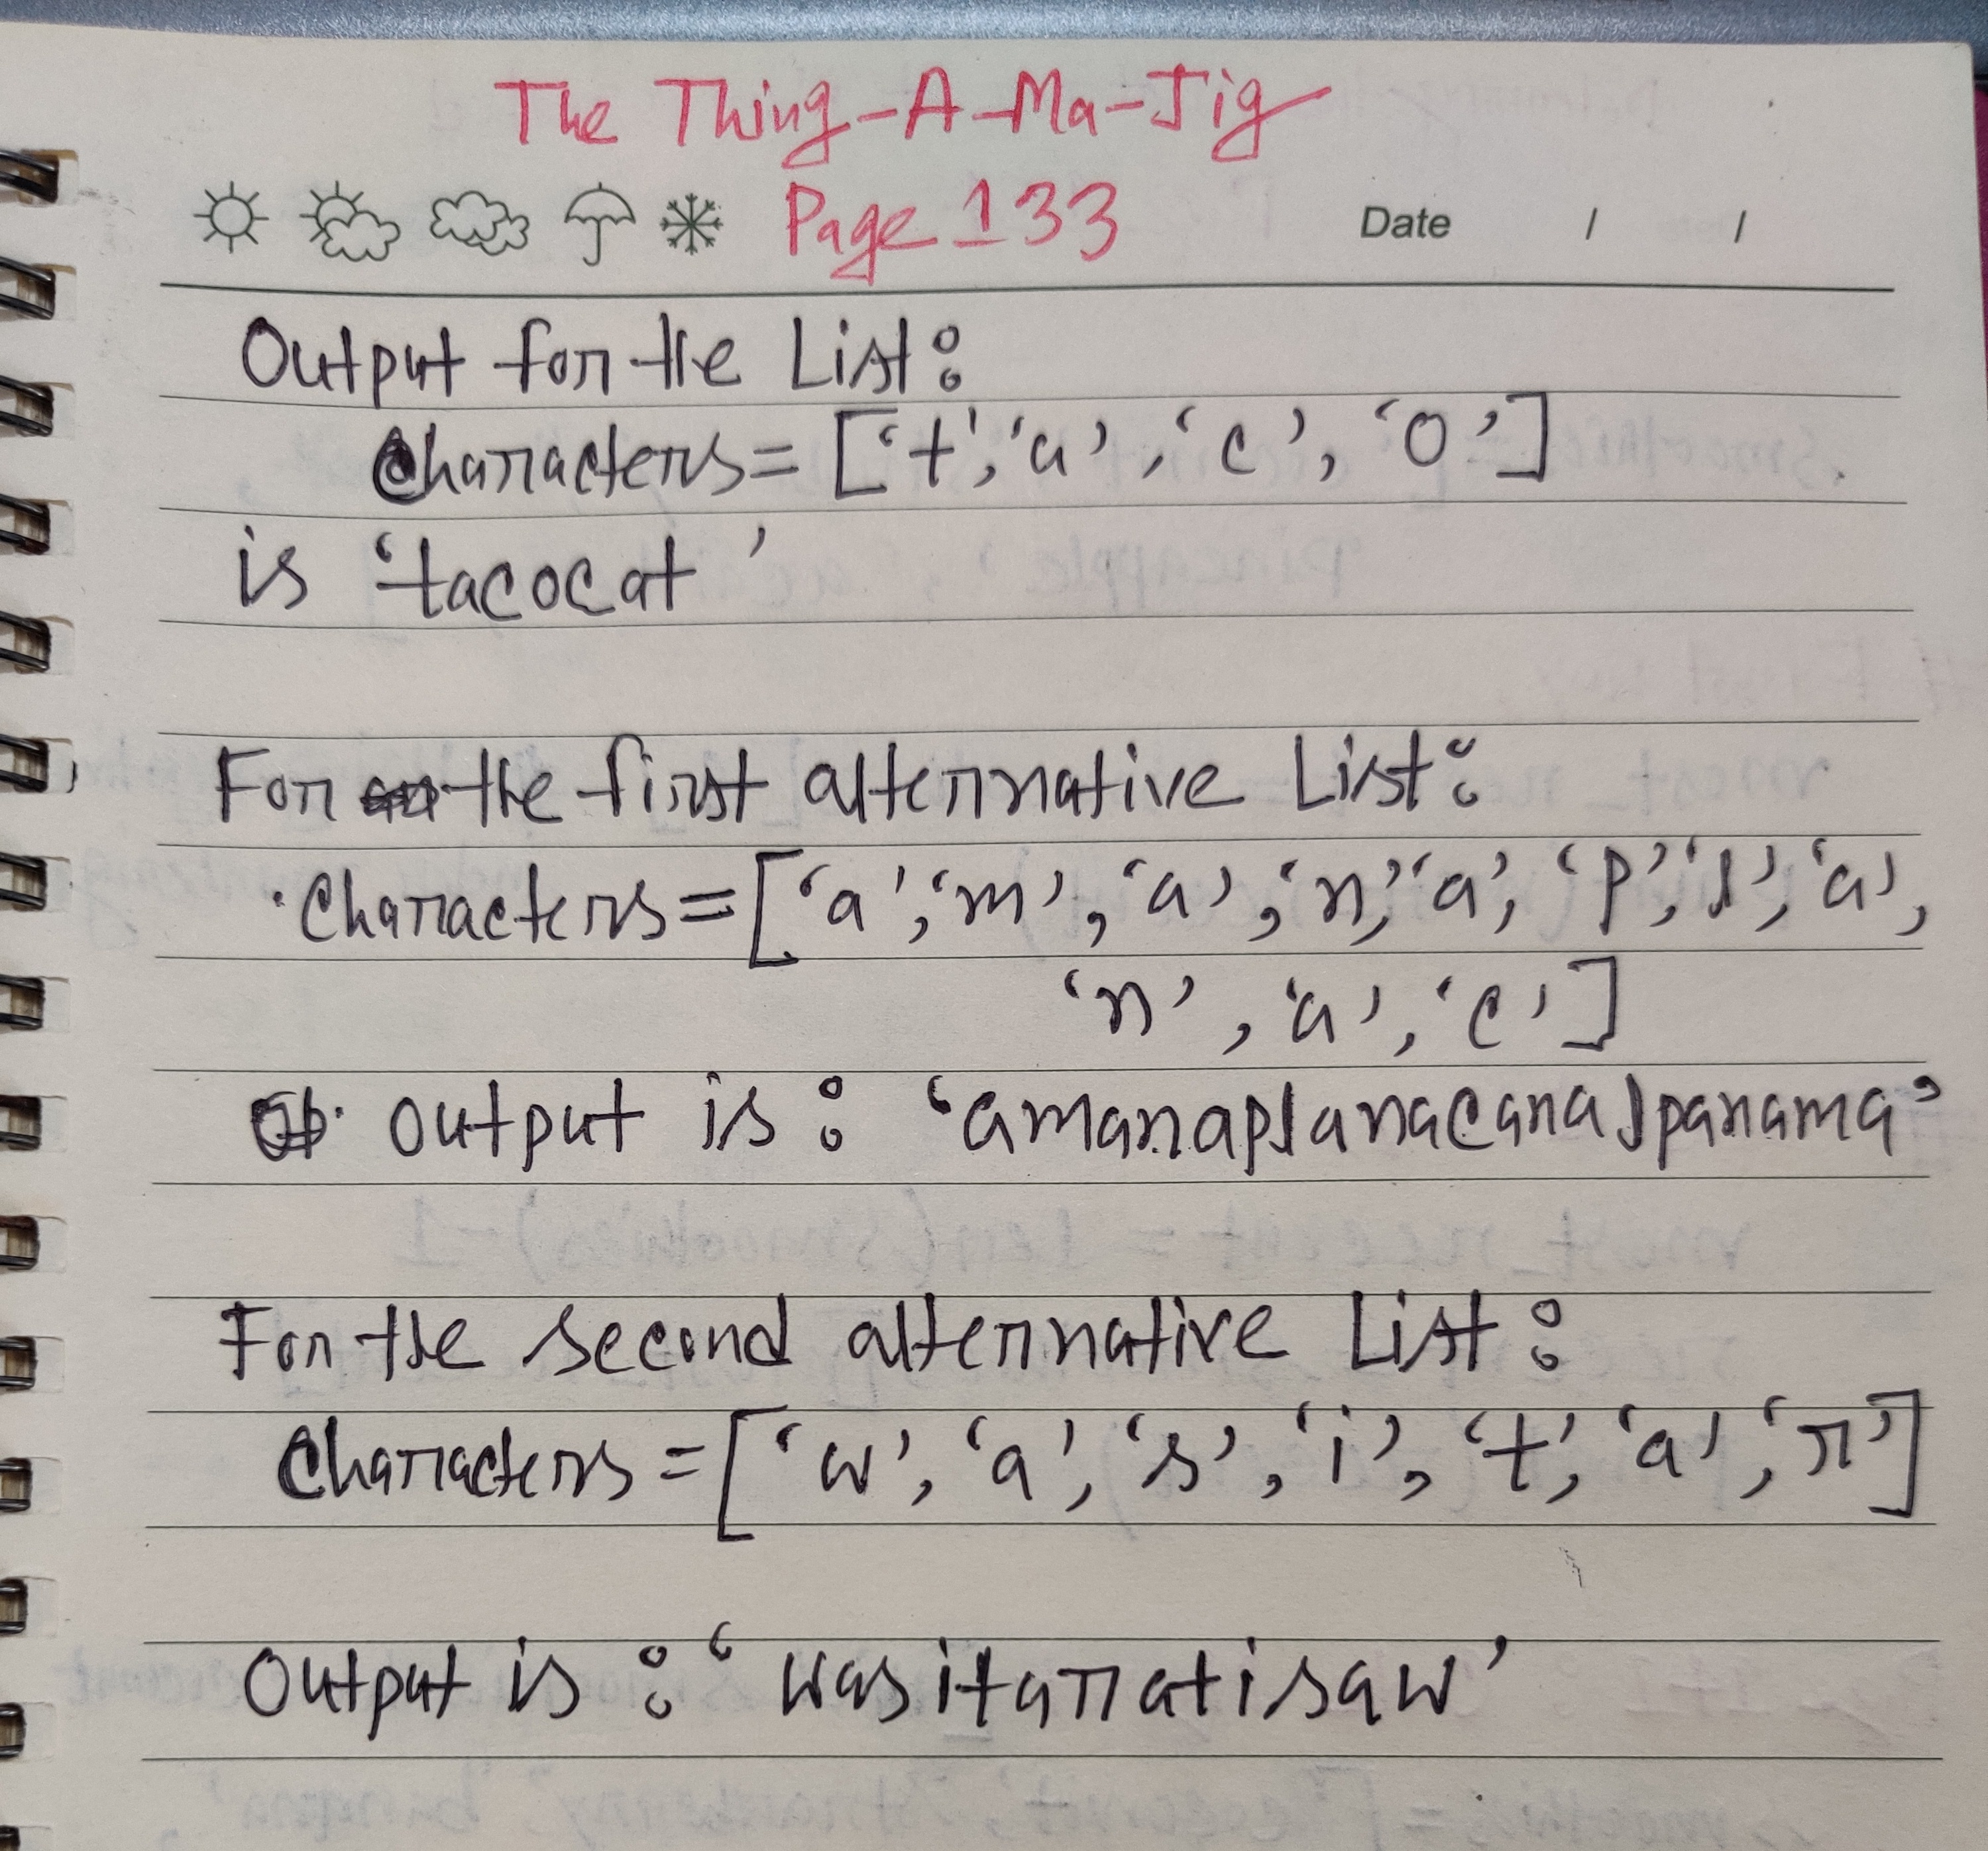 The Thing-A-Ma-Jig
Page 133
Date / /
Output for the List:
Characters = ['t', 'a', 'c', 'o']
is 'tacocat'
For the first alternative List:
Characters = ['a', 'm', 'a', 'n', 'a', 'p', 'l', 'a',
'n', 'a', 'c']
output is: 'amanaplanacanalpanama'
For the second alternative List:
Characters = ['w', 'a', 's', 'i', 't', 'a', 'r']
Output is: 'wasitaratisaw'